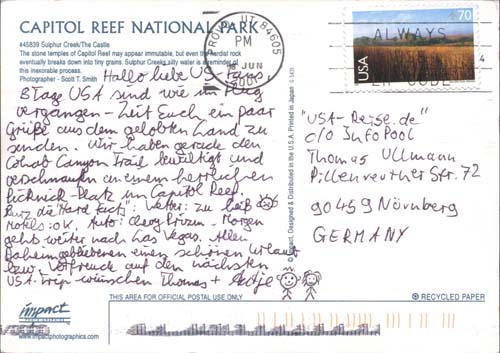 CAPITOL REEF NATIONAL PARK
#45839 Sulphur Creek/The Castle
The stone temples of Capitol Reef may appear immutable, but even the hardist rock
eventually breaks down into tiny grains. Sulphur Creeks silty water is a reminder of
this inexorable process.
Photographer - Scott T. Smith
Hallo liebe US Fans
8 Tage USA sind wie im Flug
vergangen - Zeit Euch ein paar
Grüße aus dem gelobten Land zu
senden. Wir haben gerade den
Cohab Canyon Trail bewältigt und
verschnaufen an einem herrlichen
Picknick-Platz im Capitol Reef.
Kurz die "Hard facts": Wetter: zu heiß
Motels: ok, Auto: Chevy Prizm. Morgen
geht's weiter nach Las Vegas. Allen
Daheimgebliebenen einen schönen Urlaub
bzw. Vorfreude auf den nächsten
USA-Trip wünschen Thomas + Antje
impact
www.impactphotographics.com
© Impact, Designed & Distributed in the U.S.A. Printed in Japan
PROVO, UT 84605
PM
JUN
2001
ALWAYS
USA
70
"USA-Reise.de"
c/o InfoPool
Thomas Ullmann
Pillenreuther Str. 72
90459 Nürnberg
GERMANY
THIS AREA FOR OFFICIAL POSTAL USE ONLY
RECYCLED PAPER